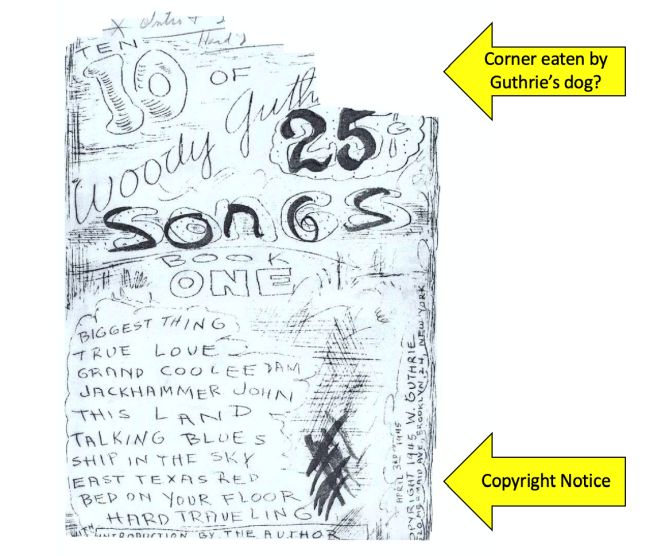 Intro +
Corner eaten by
Guthrie's dog?
TEN
10 OF
Woody Guth
25¢
SONGS
BOOK
ONE
BIGGEST THING
TRUE LOVE
GRAND COOLEE DAM
JACKHAMMER JOHN
THIS LAND
TALKING BLUES
SHIP IN THE SKY
EAST TEXAS RED
BED ON YOUR FLOOR
HARD TRAVELING
INTRODUCTION BY THE AUTHOR
APRIL 3RD 1945
OPYRIGHT 1945 W. GUTHRIE
20 MERMAID AVE, BROOKLYN, 24, NEW YORK
Copyright Notice